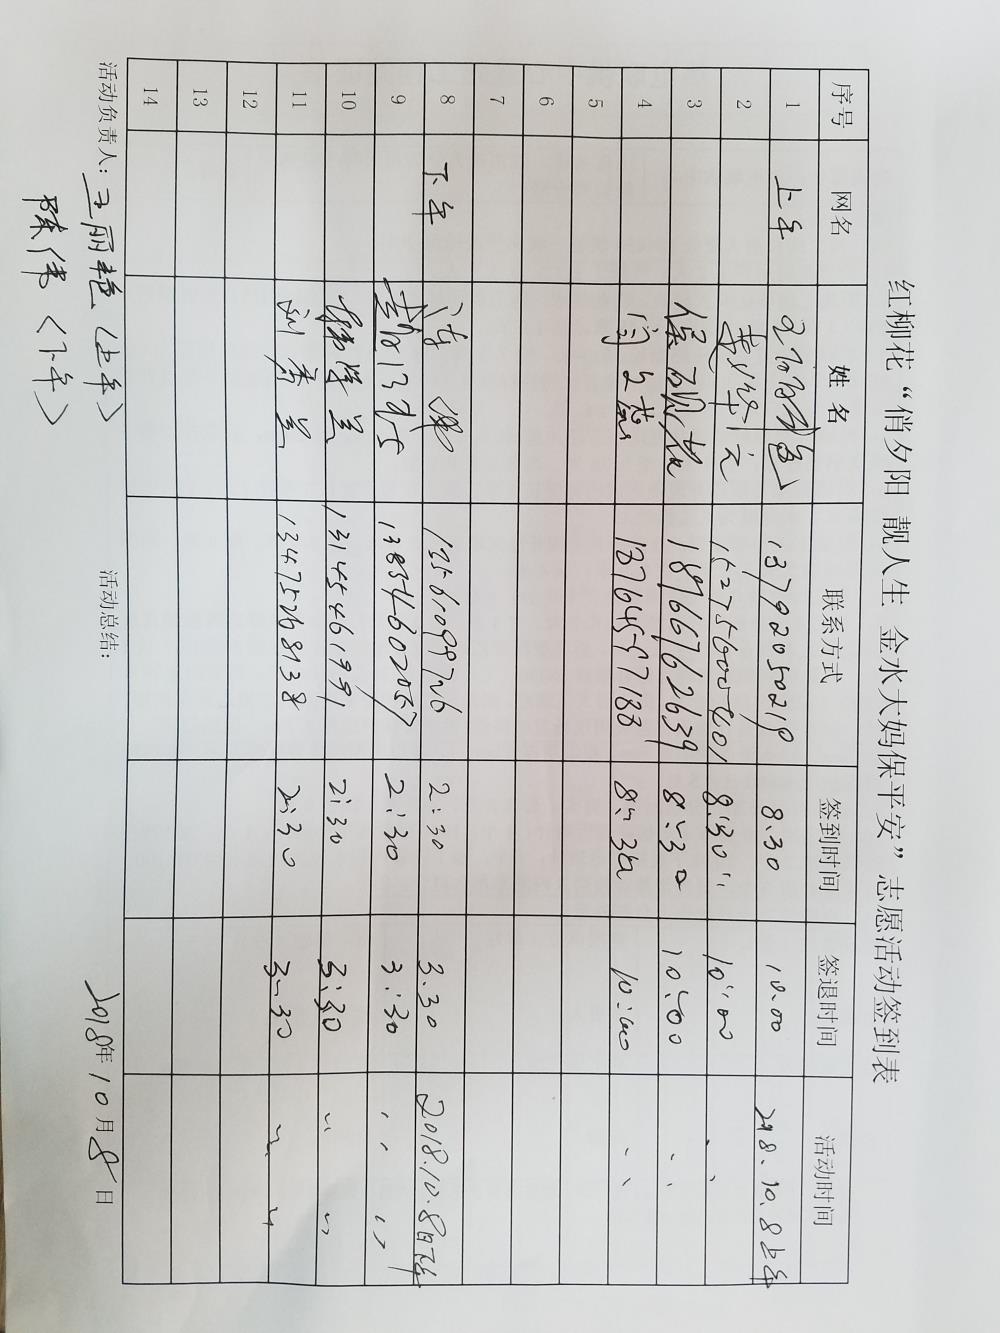 红柳花“俏夕阳 靓人生 金水大妈保平安”志愿活动签到表
序号 网名 姓名 联系方式 签到时间 签退时间 活动时间
1 上午 13792050219 8:30 10:00 2018.10.8上午
2 8:30 10:00 〃
3 18766762639 8:30 10:00 〃
4 13764597188 8:30 10:00 〃
5
6
7
8 下午 2:30 3:30 2018.10.8日下午
9 13854602057 2:30 3:30 〃 〃
10 13145461991 2:30 3:30 〃 〃
11 刘秀兰 13475268138 2:30 3:30 〃 〃
12
13
14
活动负责人：王丽艳（上午） 活动总结： 2018年10月8日
陈伟（下午）